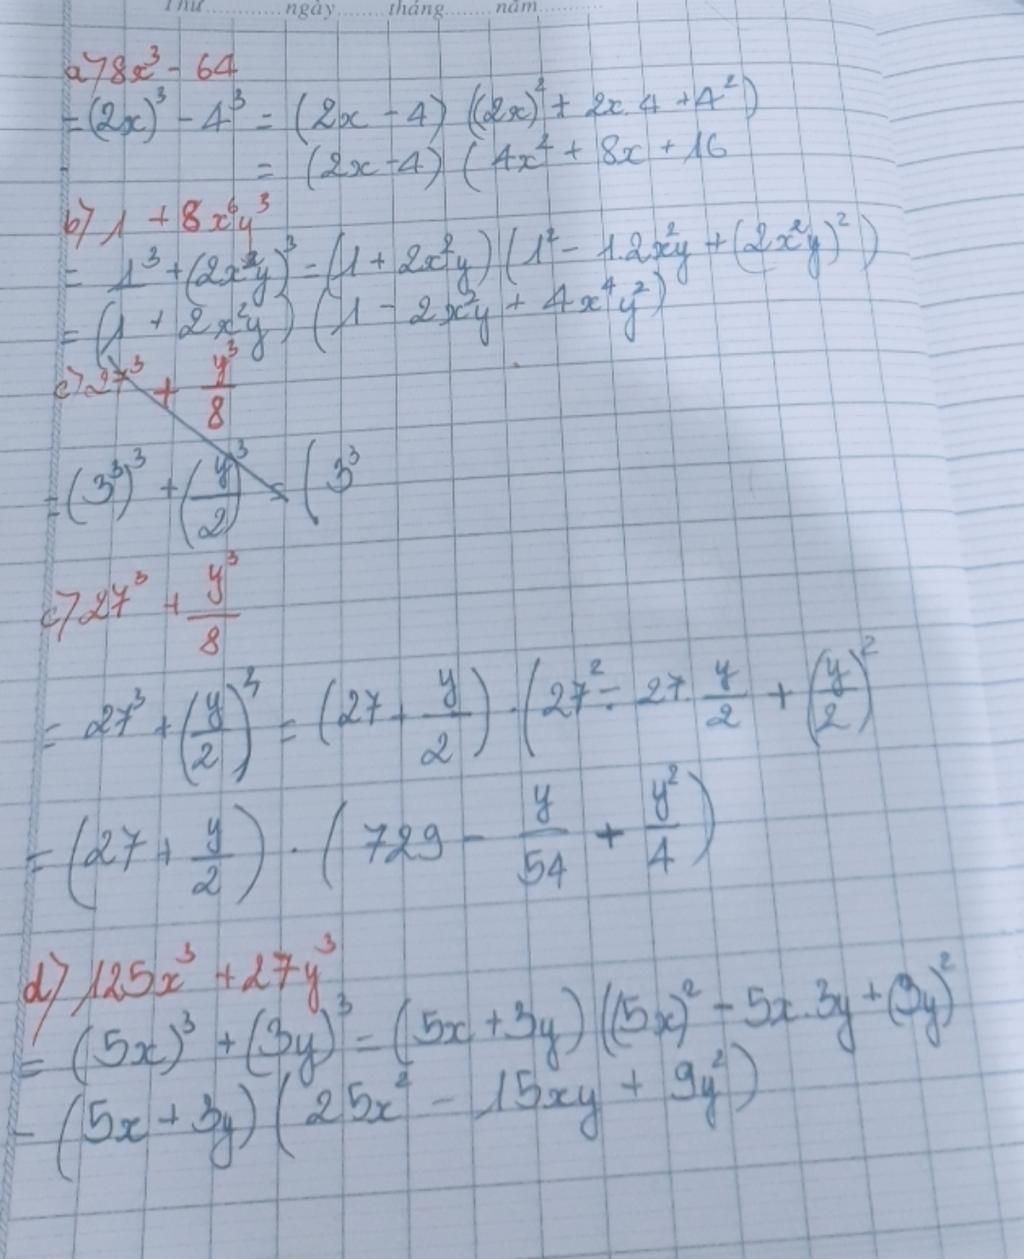 Thứ ngày tháng năm
a) 8x³ - 64
= (2x)³ - 4³ = (2x - 4) ((2x)² + 2x.4 + 4²)
= (2x - 4) (4x² + 8x + 16
b) 1 + 8x⁶y³
= 1³ + (2x²y)³ = (1 + 2x²y) (1² - 1.2x²y + (2x²y)²)
= (1 + 2x²y) (1 - 2x²y + 4x⁴y²)
c) 27³ + y³/8
= (3³)³ + (y/2)³ = (3³
c) 27³ + y³/8
= 27³ + (y/2)³ = (27 + y/2) . (27² - 27 . y/2 + (y/2)²
= (27 + y/2) . (729 - y/54 + y²/4)
d) 125x³ + 27y³
= (5x)³ + (3y)³ = (5x + 3y) ((5x)² - 5x.3y + (3y)²
= (5x + 3y) (25x² - 15xy + 9y²)